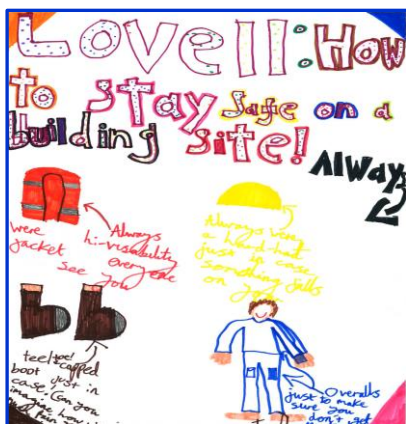 Lovell: How
to stay safe on a
building site!
Always
were
jacket
Always
hi-visability
everyone
see you
Always very
a hard-hat
just in case
something falls
on you
teel toe
capped
boot just in
case. Can you
imagine how
Overalls
just to make
sure you
don't get